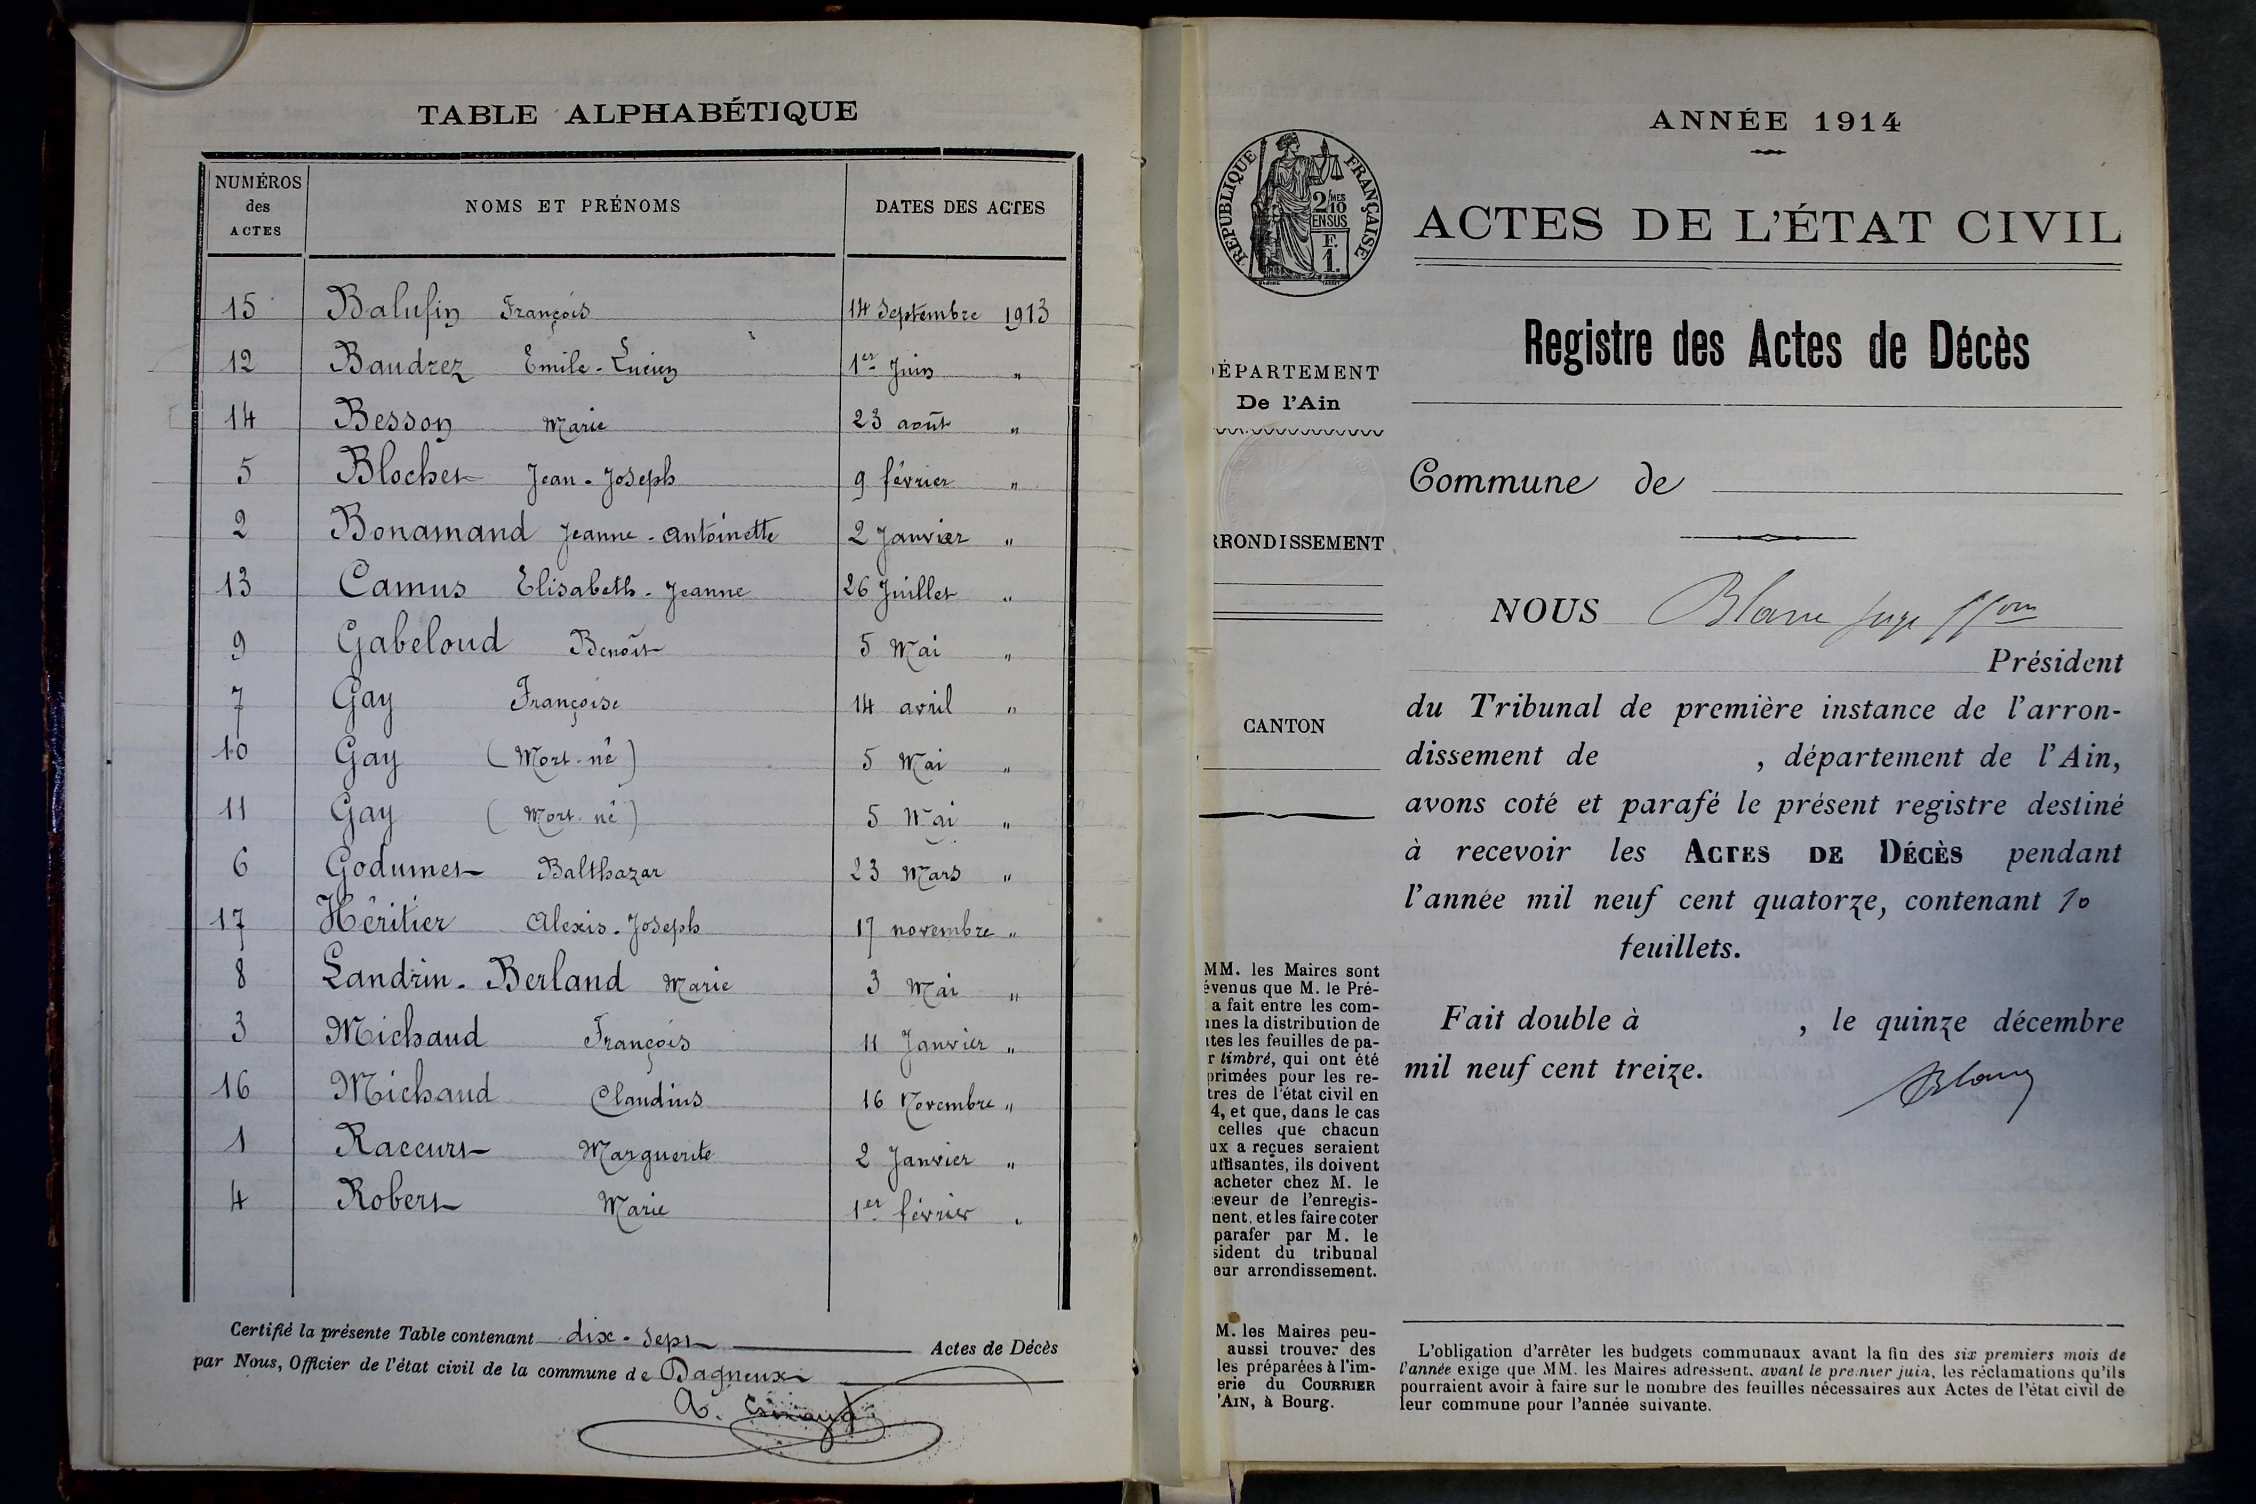 TABLE ALPHABÉTIQUE
NUMÉROS des ACTES
NOMS ET PRÉNOMS
DATES DES ACTES
15 Balufin François 14 Septembre 1913
12 Baudrez Emile-Lucien 1er Juin "
14 Besson Marie 23 août "
5 Blochet Jean-Joseph 9 février "
2 Bonamand Jeanne-Antoinette 2 Janvier "
13 Camus Elisabeth-Jeanne 26 Juillet "
9 Gabeloud Benoît 5 Mai "
7 Gay Françoise 14 avril "
10 Gay (Mort-né) 5 Mai "
11 Gay (Mort-né) 5 Mai "
6 Godumet Balthazar 23 Mars "
17 Héritier Alexis-Joseph 17 novembre "
8 Landrin-Berland Marie 3 Mai "
3 Michaud François 11 Janvier "
16 Michaud Claudius 16 Novembre "
1 Raccurt Marguerite 2 Janvier "
4 Robert Marie 1er février "
Certifié la présente Table contenant dix-sept Actes de Décès
par Nous, Officier de l'état civil de la commune de Dagneux
A.
RÉPUBLIQUE FRANÇAISE
2/10 MES
EN SUS
F.
1.
ÉPARTEMENT
De l'Ain
RRONDISSEMENT
CANTON
MM. les Maires sont
évenus que M. le Pré-
a fait entre les com-
unes la distribution de
utes les feuilles de pa-
r timbré, qui ont été
primées pour les re-
tres de l'état civil en
4, et que, dans le cas
celles que chacun
ux a reçues seraient
uffisantes, ils doivent
acheter chez M. le
ceveur de l'enregis-
ment, et les faire coter
parafer par M. le
sident du tribunal
eur arrondissement.
M. les Maires peu-
aussi trouver des
les préparées à l'im-
erie du COURRIER
'AIN, à Bourg.
ANNÉE 1914
ACTES DE L'ÉTAT CIVIL
Registre des Actes de Décès
Commune de
NOUS Blanc juge
Président
du Tribunal de première instance de l'arron-
dissement de , département de l'Ain,
avons coté et parafé le présent registre destiné
à recevoir les ACTES DE DÉCÈS pendant
l'année mil neuf cent quatorze, contenant 10
feuillets.
Fait double à , le quinze décembre
mil neuf cent treize.
Blanc
L'obligation d'arrêter les budgets communaux avant la fin des six premiers mois de
l'année exige que MM. les Maires adressent, avant le premier juin, les réclamations qu'ils
pourraient avoir à faire sur le nombre des feuilles nécessaires aux Actes de l'état civil de
leur commune pour l'année suivante.